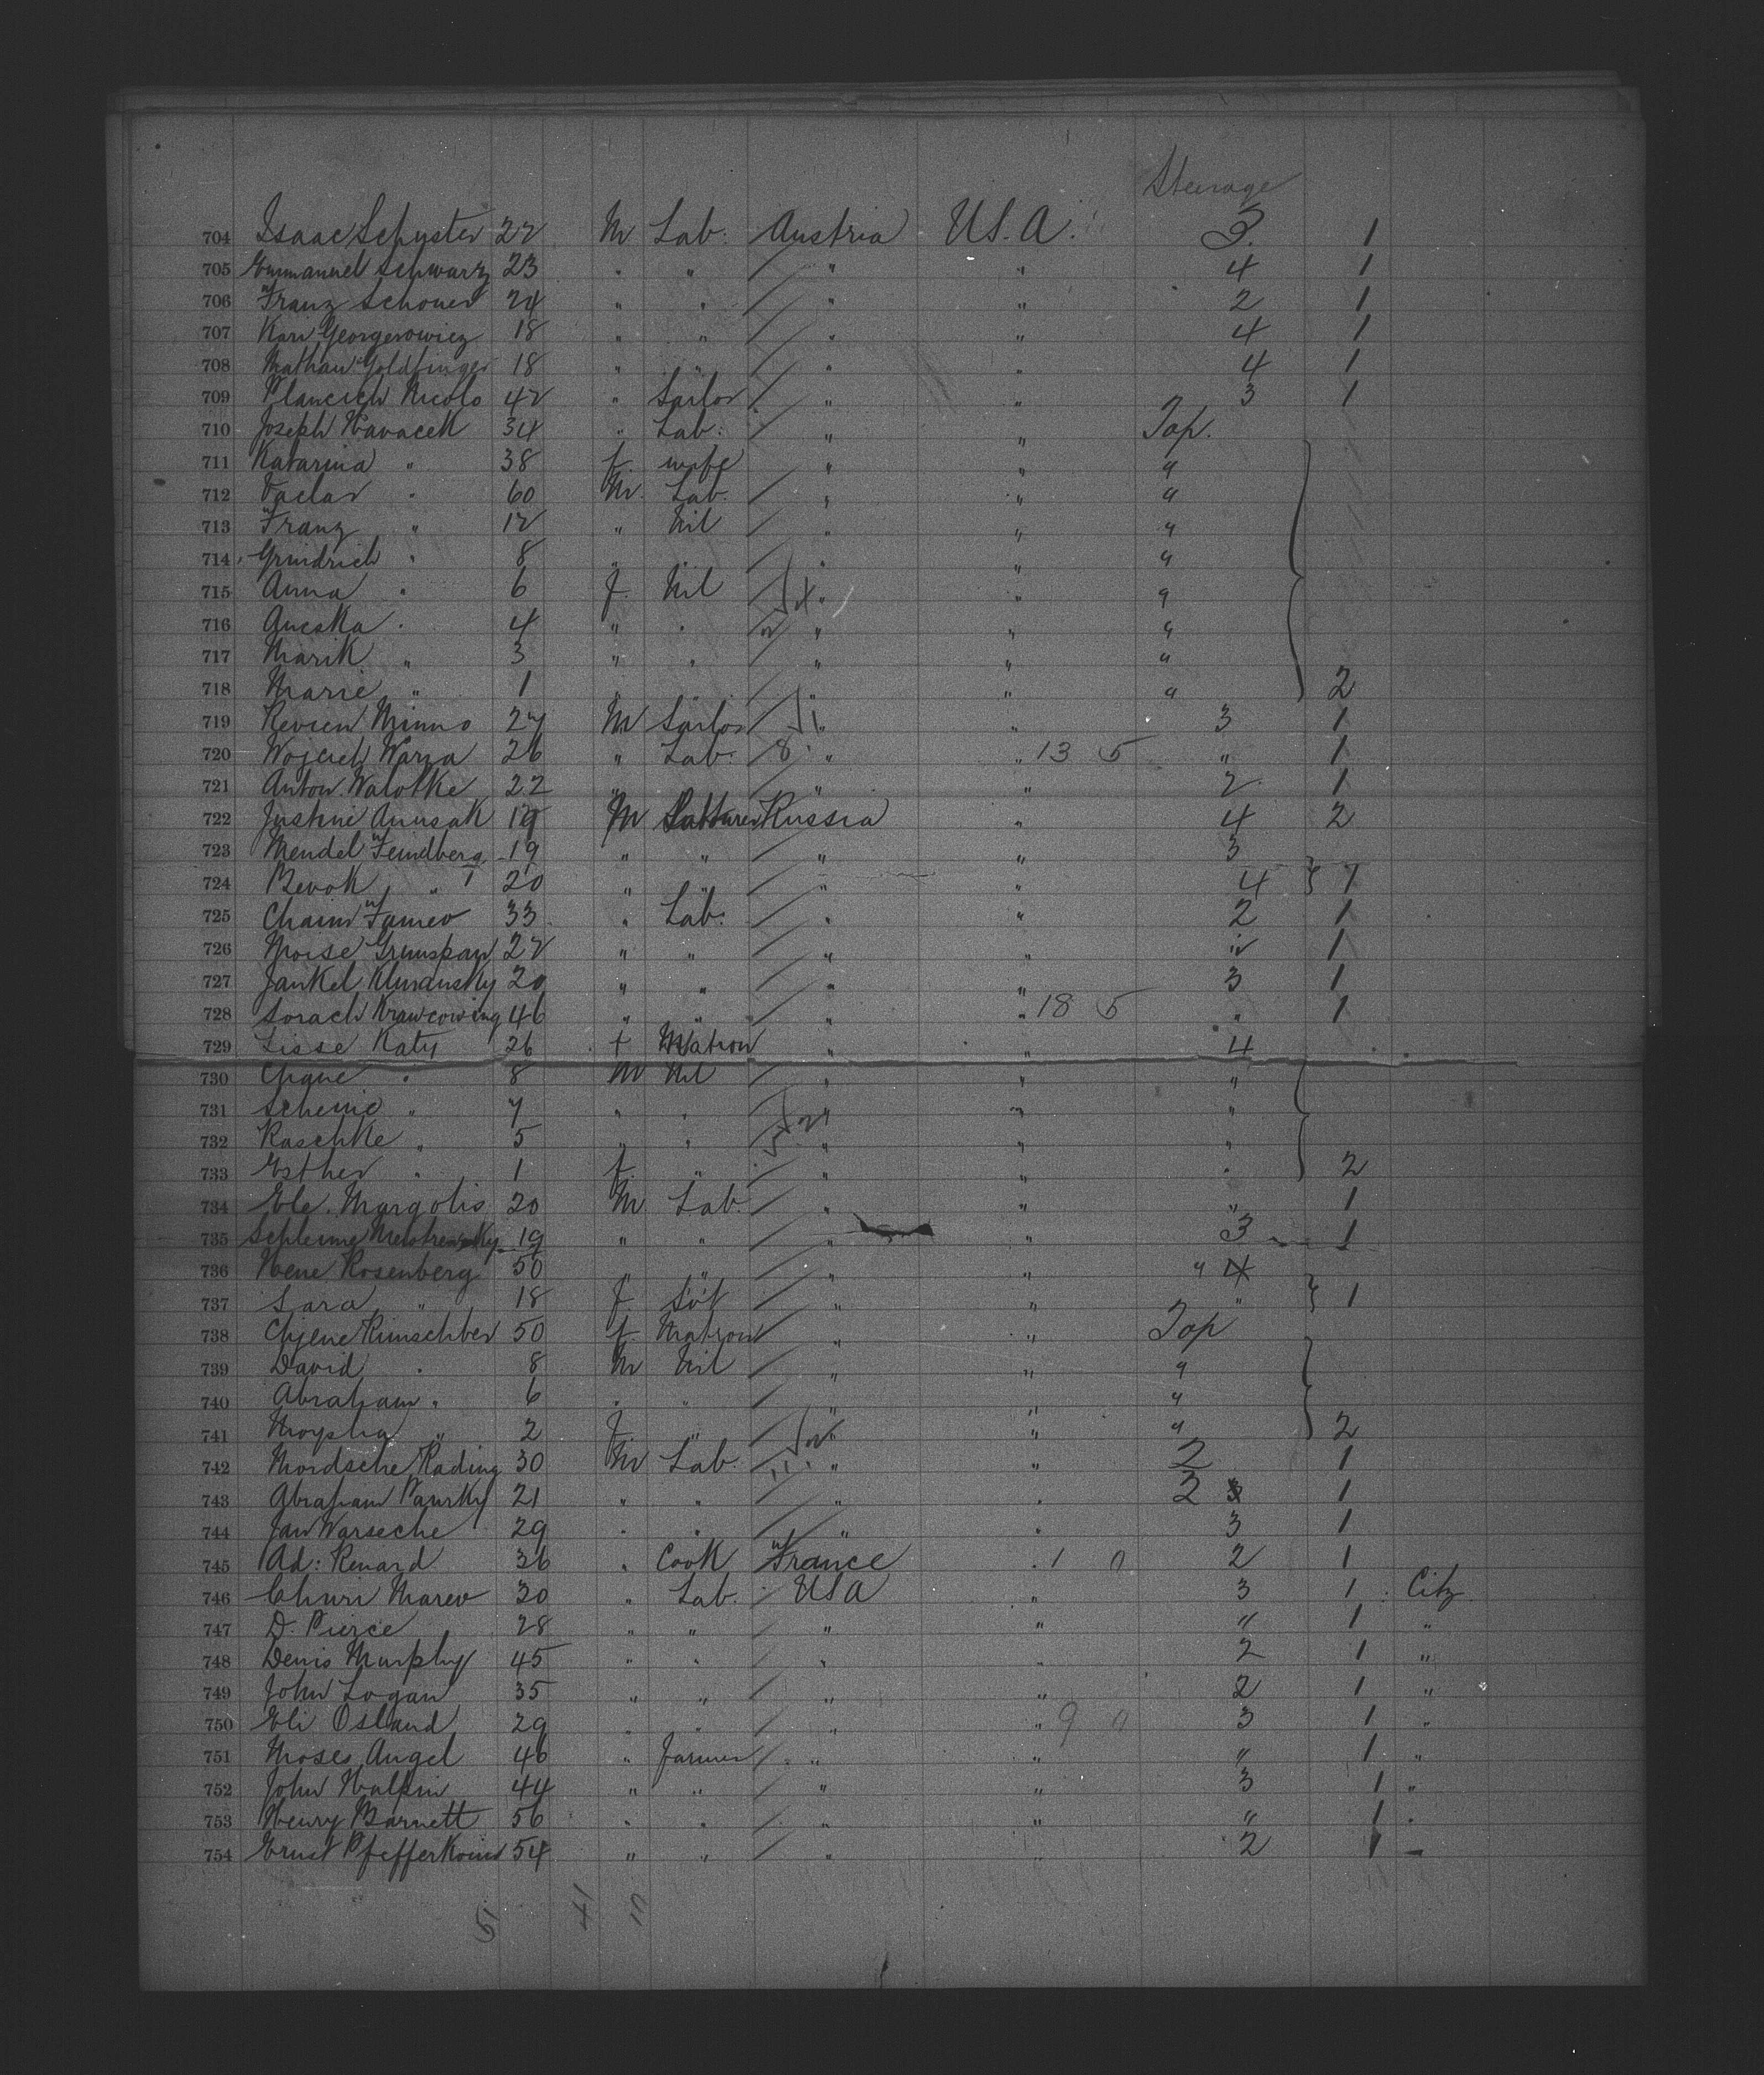 Steerage
704 Isaac Schuster 22 M Lab. Austria U.S.A. 3. 1
705 Emmanuel Schwarz 23 " " / " " 4 1
706 Franz Schoner 24 " " / " " 2 1
707 Karl Georgerowicz 18 " " / " " 4 1
708 Nathan Goldfinger 18 " " / " " 4 1
709 Plancich Nicolo 42 " Sailor / " " 3 1
710 Joseph Havacek 34 " Lab. / " " Top.
711 Katarina " 38 f. wife " " "
712 Vaclav " 60 M. Lab. / " " "
713 Franz " 12 " Nil / " " "
714 " 8 " " / " " "
715 Anna " 6 f. Nil " " "
716 Aneska " 4 " " " " "
717 Marik " 3 " " / " " "
718 Marie " 1 " " / " " " 2
719 Minno 27 M Sailor / " " 3 1
720 Wojciech 26 " Lab. 8 " " 13 5 " 1
721 Anton Walotke 22 " " " 2 1
722 Justine Anusak 19 M Russia " 4 2
723 Mendel Feindberg 19 " " / " " 3
724 " 20 " " / " " 4 1
725 Chaim 33 " Lab. / " " 2 1
726 Moise Grunspan 22 " " / " " " 1
727 Jankel 20 " " / " " 3 1
728 46 " " / " " 18 5 " 1
729 Lisse Katy 26 f Matron " " 4
730 " 8 M Nil / " " "
731 Scheme " 7 " " " " "
732 Raschke " 5 " " " " "
733 Esther " 1 f. " / " " " 2
734 Ele. Margolis 20 M Lab. / " " " 1
735 Schleime 19 " " / " " 3 1
736 Hene Rosenberg 50 " " / " " " 4
737 Sara " 18 f. / " " " 1
738 50 f. Matron / " " Top
739 David " 8 M Nil / " " "
740 Abraham " 6 " " / " " "
741 " 2 f. " / " " " 2
742 Mordsche Rading 30 M Lab. 11 " " 2 1
743 Abraham 21 " " / " " 2 3 1
744 Jan Warseche 29 " " / " " 3 1
745 Ad: Renard 36 " Cook France " 1 0 2 1
746 30 " Lab. / USA " 3 1 Citz
747 D. Pierce 28 " " / " " " 1 "
748 Denis Murphy 45 " " / " " 2 1 "
749 John Logan 35 " " / " " 2 1 "
750 Eli Osland 29 " " / " " 9 0 3 1 "
751 Moses Angel 46 " Farmer / " " " 1 "
752 John Halpin 44 " " / " " 3 1 "
753 Henry Barnett 56 " " / " " " 1 "
754 Ernst Pfefferkorn 54 " " / " " 2 1 "
51 41 10